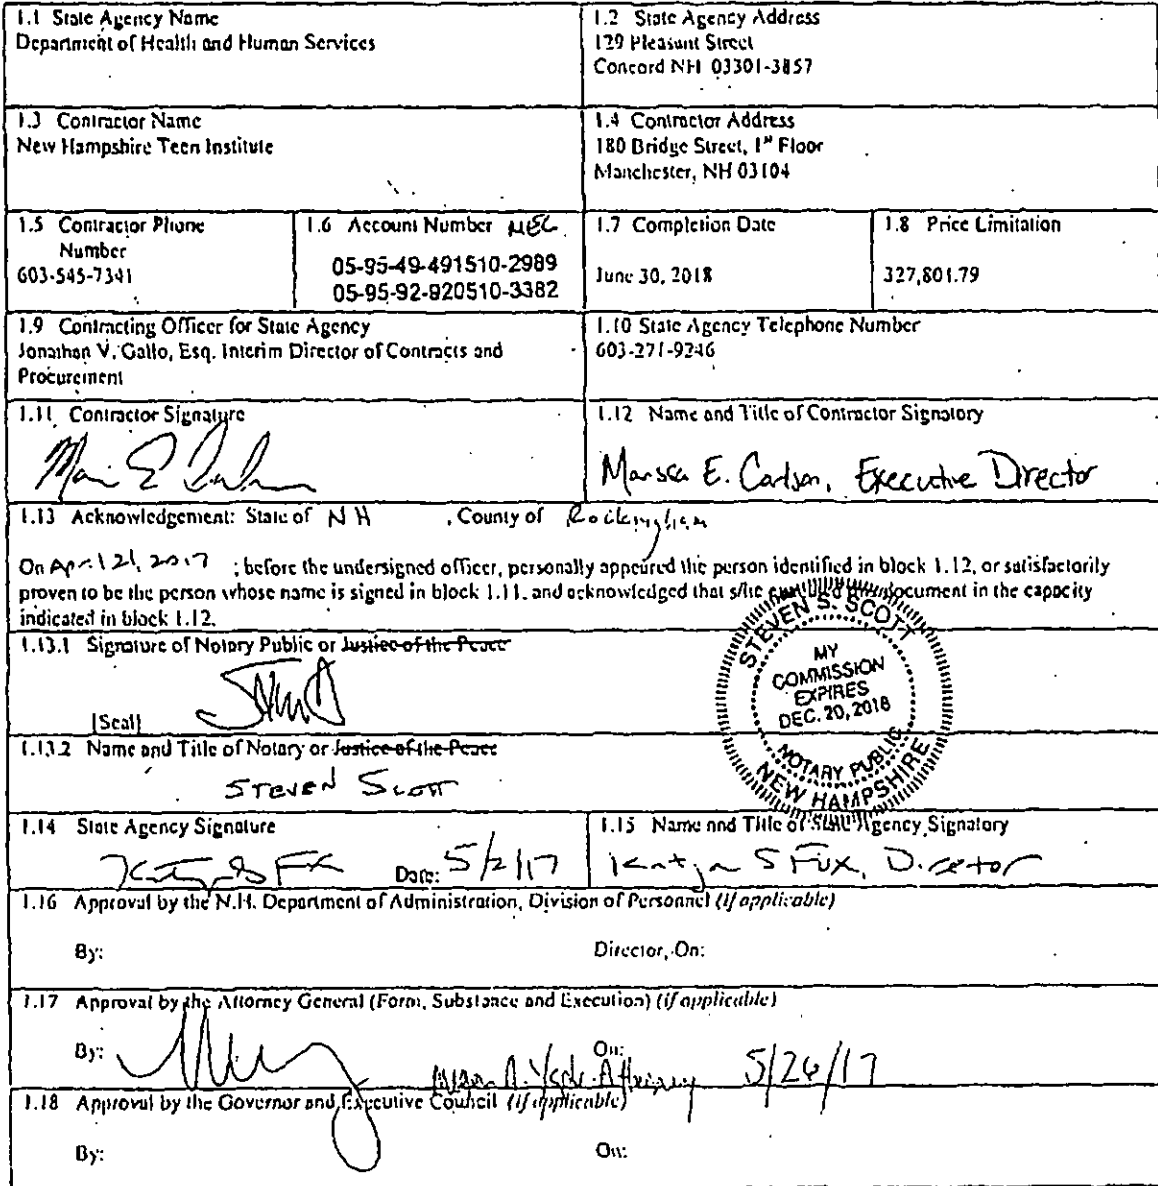 1.1 State Agency Name
Department of Health and Human Services
1.2 State Agency Address
129 Pleasant Street
Concord NH 03301-3857
1.3 Contractor Name
New Hampshire Teen Institute
1.4 Contractor Address
180 Bridge Street, 1st Floor
Manchester, NH 03104
1.5 Contractor Phone
Number
603-545-7341
1.6 Account Number MEC
05-95-49-491510-2989
05-95-92-920510-3382
1.7 Completion Date
June 30, 2018
1.8 Price Limitation
327,801.79
1.9 Contracting Officer for State Agency
Jonathan V. Gallo, Esq. Interim Director of Contracts and
Procurement
1.10 State Agency Telephone Number
603-271-9246
1.11 Contractor Signature
1.12 Name and Title of Contractor Signatory
Marissa E. Carlson, Executive Director
1.13 Acknowledgement: State of NH , County of Rockingham
On April 21, 2017 , before the undersigned officer, personally appeared the person identified in block 1.12, or satisfactorily
proven to be the person whose name is signed in block 1.11, and acknowledged that s/he document in the capacity
indicated in block 1.12.
1.13.1 Signature of Notary Public or Justice of the Peace
[Seal]
STEVEN S. SCOTT
MY
COMMISSION
EXPIRES
DEC. 20, 2018
NOTARY PUBLIC
NEW HAMPSHIRE
1.13.2 Name and Title of Notary or Justice of the Peace
STEVEN SCOTT
1.14 State Agency Signature
Date: 5/2/17
1.15 Name and Title of State Agency Signatory
Katja S Fox, Director
1.16 Approval by the N.H. Department of Administration, Division of Personnel (if applicable)
By:
Director, On:
1.17 Approval by the Attorney General (Form, Substance and Execution) (if applicable)
By:
On:
Attorney 5/26/17
1.18 Approval by the Governor and Executive Council (if applicable)
By:
On: